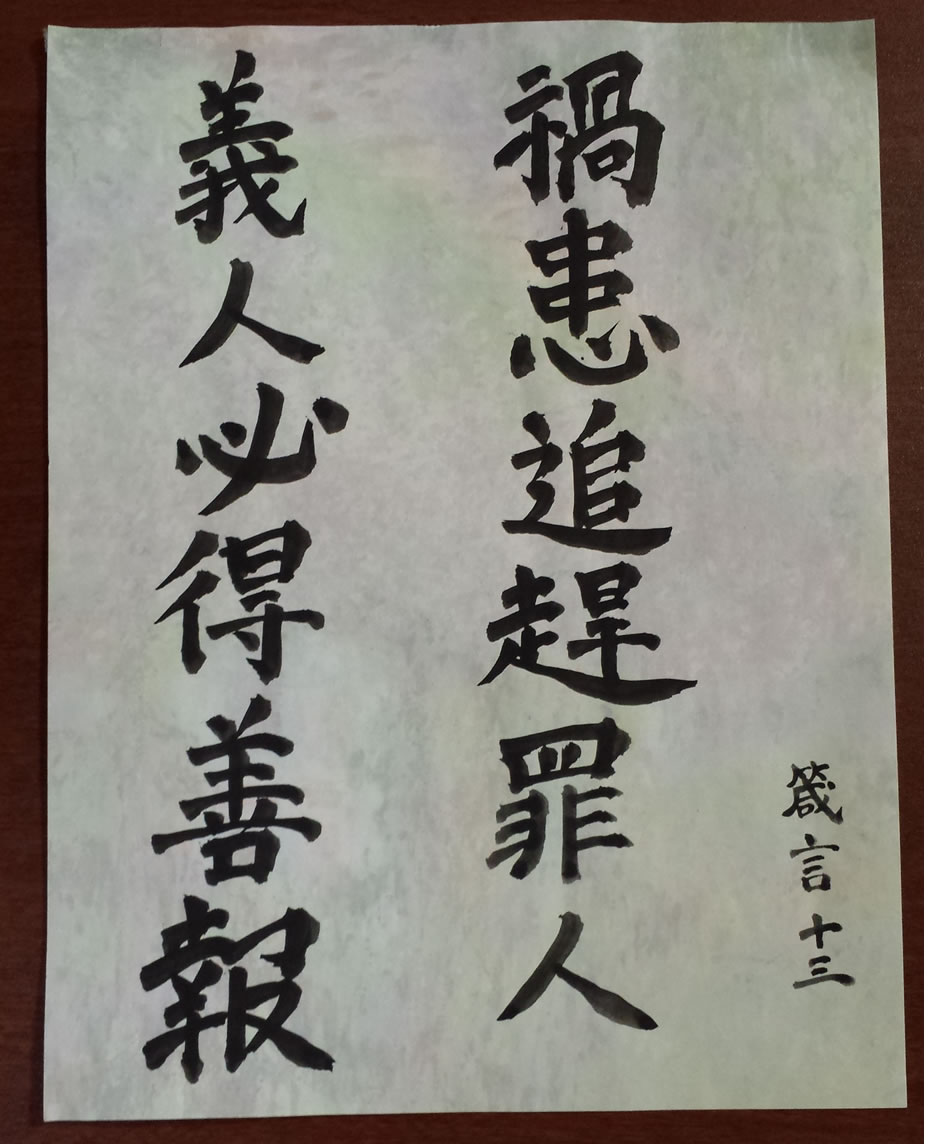 箴言十三
禍患追趕罪人
義人必得善報